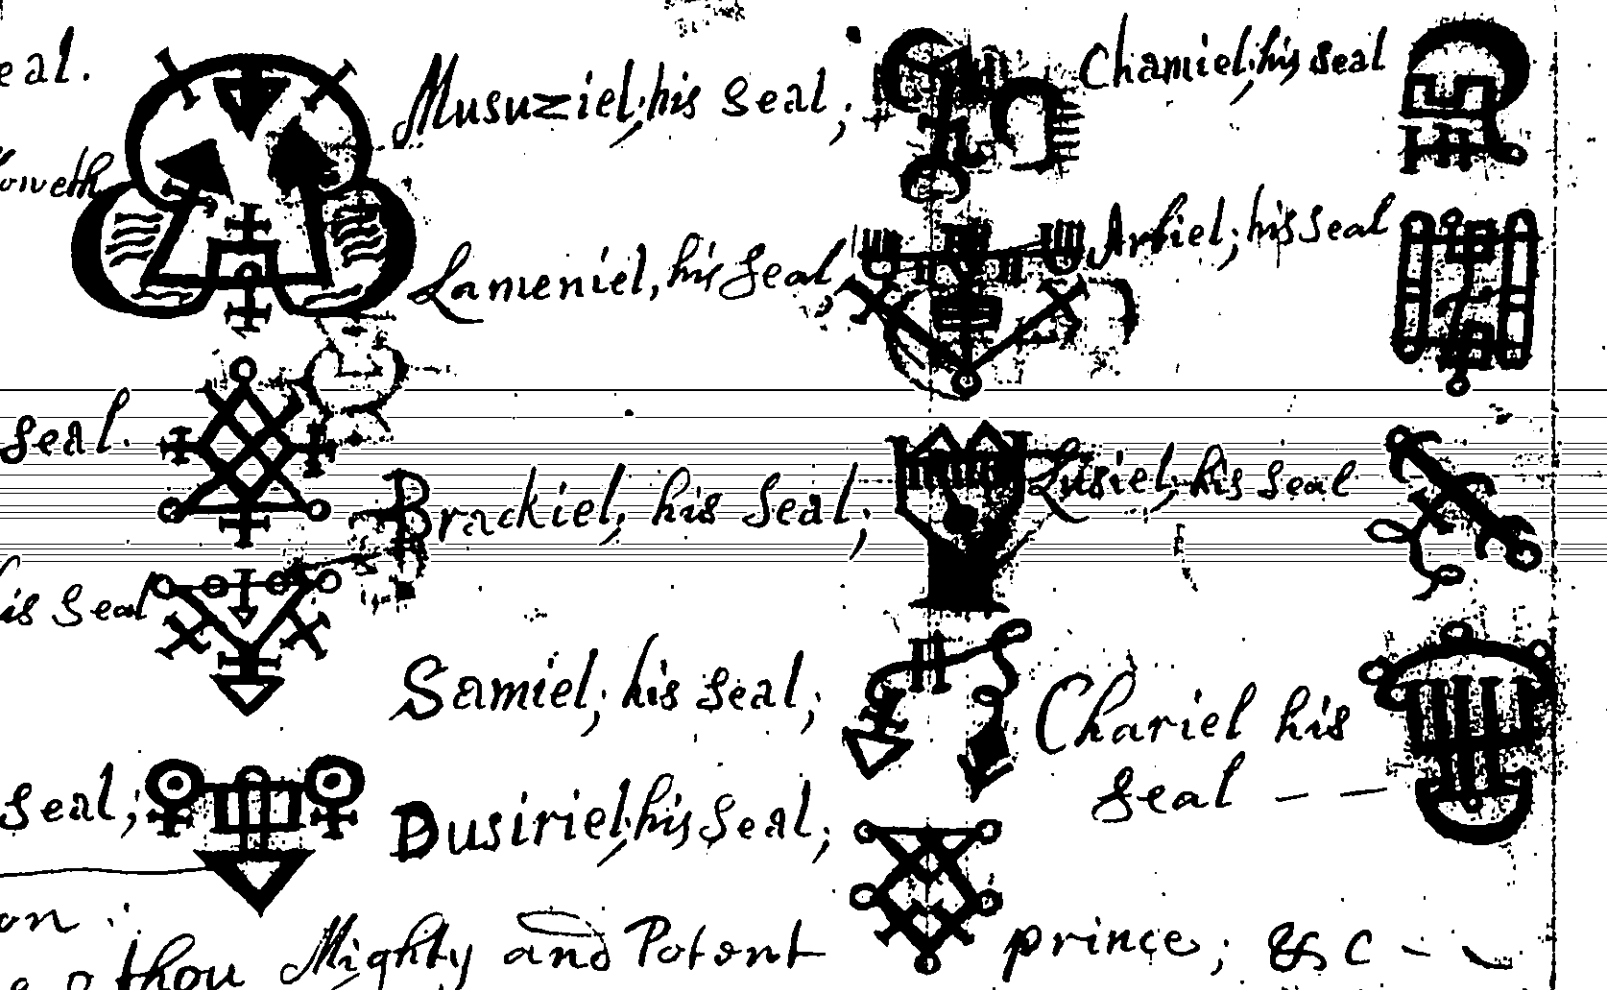 eal.
Musuziel, his seal;
Chamiel, his seal
Lameniel, his seal,
Arbiel; his seal
seal.
Brackiel, his seal;
Lusiel, his seal
is seal
Samiel, his seal;
Chariel his
seal — —
seal;
Dusiriel, his seal;
on :
o thou Mighty and Potent prince; &c -